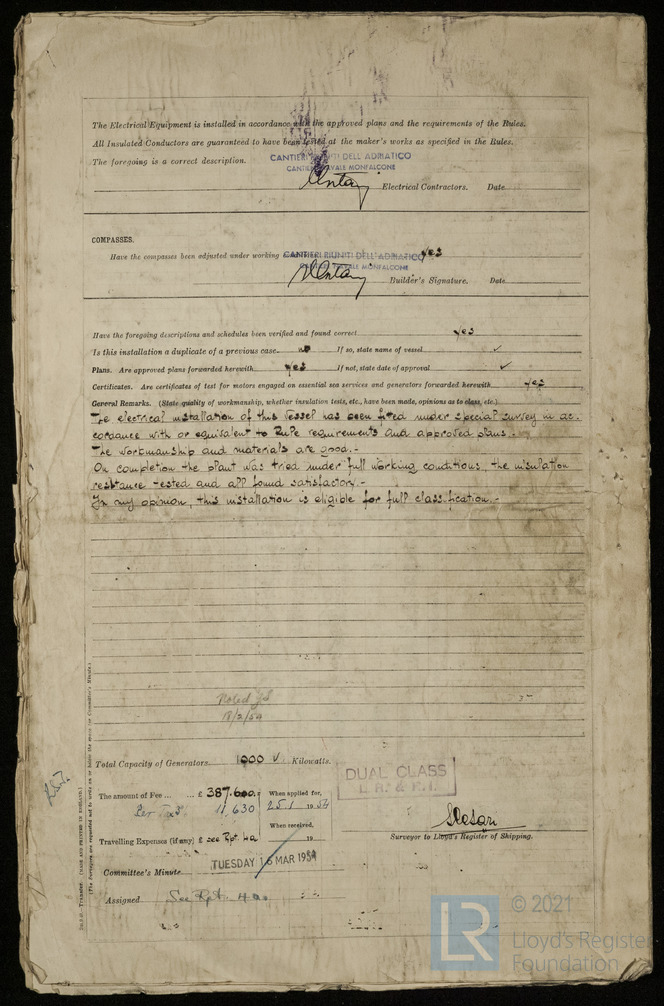 The Electrical Equipment is installed in accordance with the approved plans and the requirements of the Rules.
All Insulated Conductors are guaranteed to have been tested at the maker's works as specified in the Rules.
The foregoing is a correct description.
CANTIERI RIUNITI DELL'ADRIATICO
CANTIERE NAVALE MONFALCONE
Electrical Contractors. Date
COMPASSES.
Have the compasses been adjusted under working yes
CANTIERI RIUNITI DELL'ADRIATICO
CANTIERE NAVALE MONFALCONE
Builder's Signature. Date
Have the foregoing descriptions and schedules been verified and found correct yes
Is this installation a duplicate of a previous case no If so, state name of vessel ✓
Plans. Are approved plans forwarded herewith yes If not, state date of approval ✓
Certificates. Are certificates of test for motors engaged on essential sea services and generators forwarded herewith yes
General Remarks. (State quality of workmanship, whether insulation tests, etc., have been made, opinions as to class, etc.)
The electrical installation of this Vessel has been fitted under special survey in ac-
cordance with or equivalent to Rule requirements and approved plans.-
The workmanship and materials are good.-
On completion the plant was tried under full working conditions, the insulation
resistance tested and all found satisfactory.-
In my opinion, this installation is eligible for full classification.-
Noted
18/2/54
Total Capacity of Generators 1900 ✓ Kilowatts.
DUAL CLASS
L.R. & R.I.
The amount of Fee £ 387.600. When applied for,
11,630 25.1 1954
When received,
Travelling Expenses (if any) £ see Rpt 4a 19
Surveyor to Lloyd's Register of Shipping.
Committee's Minute TUESDAY 16 MAR 1954
Assigned See Rpt. 4a
LR
© 2021
Lloyd's Register
Foundation